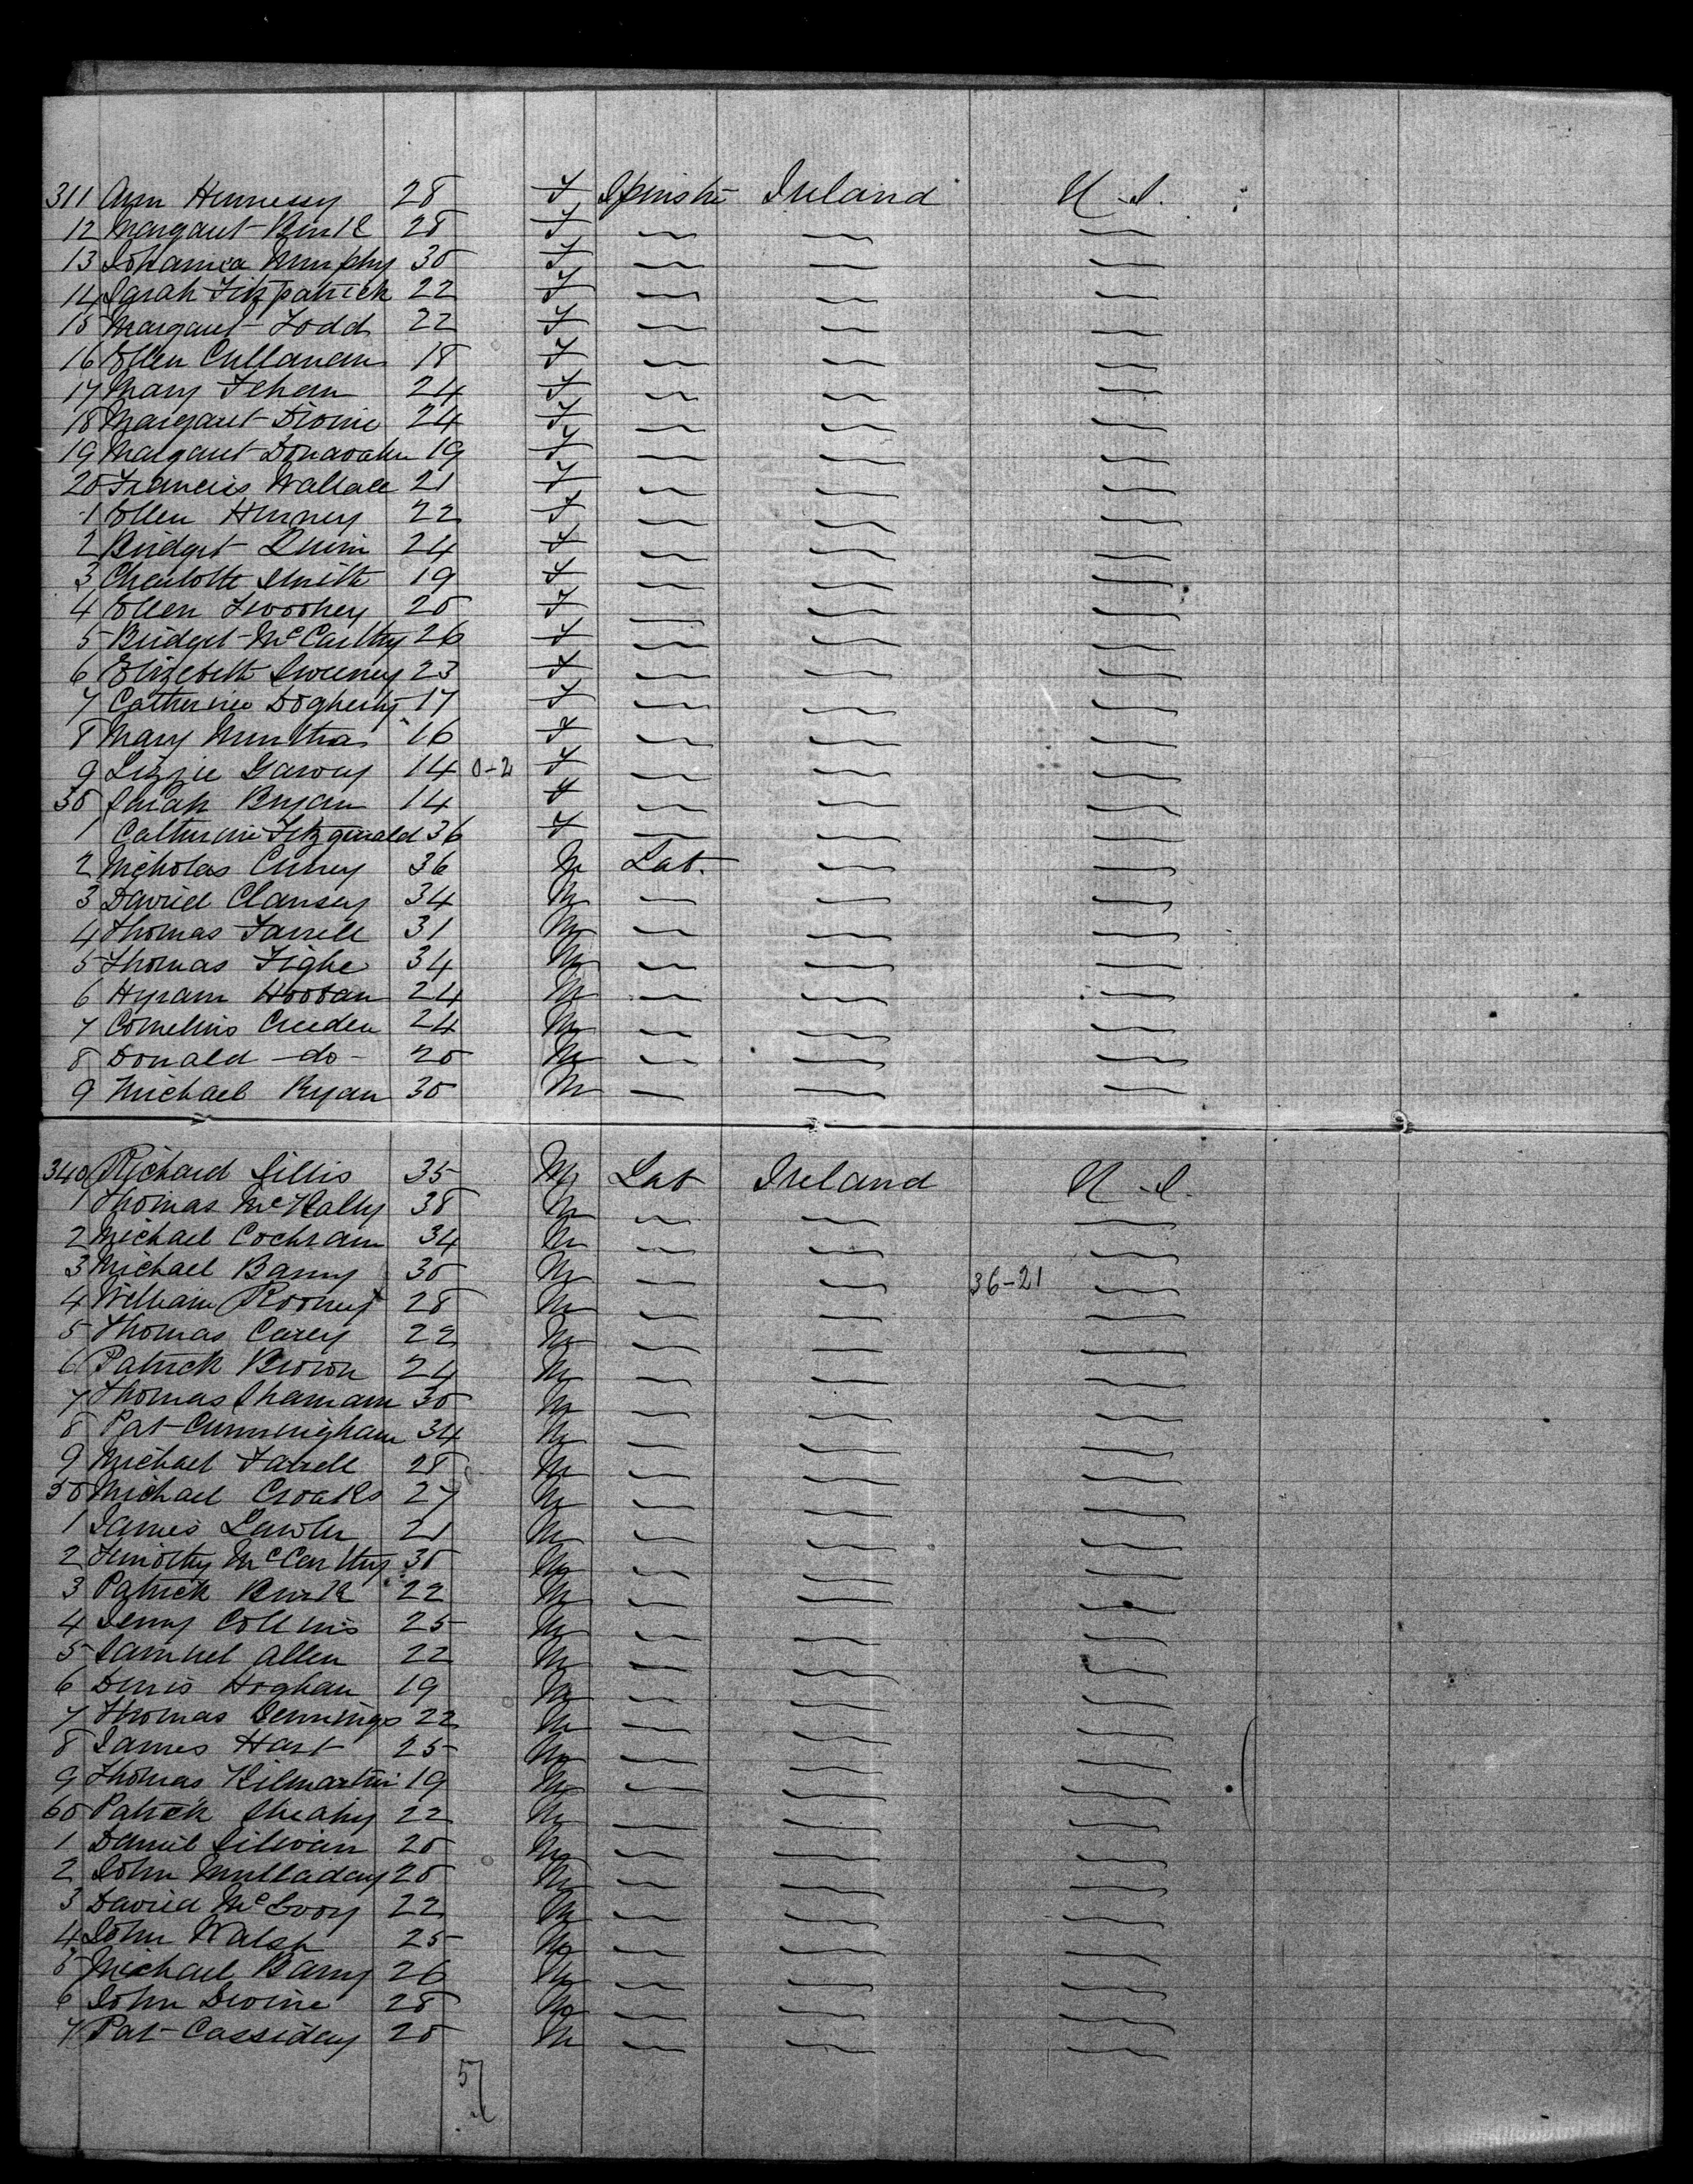 311 Ann Hennessy 28 F Spinster Ireland U.S.
12 Margaret Burke 28 F — — —
13 Johanna Murphy 30 F — — —
14 Sarah Fitzpatrick 22 F — — —
15 Margaret Todd 22 F — — —
16 Ellen Cullanan 18 F — — —
17 Mary Fehan 24 F — — —
18 Margaret Divine 24 F — — —
19 Margaret Donavahn 19 F — — —
20 Francis Wallace 21 F — — —
1 Ellen 22 F — — —
2 Bridget Quin 24 F — — —
3 Charlotte Smith 19 F — — —
4 Ellen Twoohey 20 F — — —
5 Bridget McCarthy 26 F — — —
6 Elizebeth Sweeney 23 F — — —
7 Catherine Dogherty 17 F — — —
8 Mary Murtha 16 F — — —
9 Lizzie Garvey 14 0-2 F — — —
30 Sarah Bryan 14 F — — —
1 Catherine Fitzgerald 36 F — — —
2 Nicholas 36 M Lab. — —
3 David Clansey 34 M — — —
4 Thomas Farrell 31 M — — —
5 Thomas Tighe 34 M — — —
6 Hyram Hooban 24 M — — —
7 Cornelius Creeden 24 M — — —
8 Donald -do- 20 M — — —
9 Michael Ryan 30 M — — —
340 Richard Sillis 35 M Lab Ireland U.S.
1 Thomas McNally 38 M — — —
2 Michael Cochram 34 M — — —
3 Michael Barry 30 M — — 36-21 —
4 William Rooney 28 M — — —
5 Thomas Carey 22 M — — —
6 Patrick Brown 24 M — — —
7 Thomas Shanam 30 M — — —
8 Pat Cunningham 34 M — — —
9 Michael Farrell 28 M — — —
50 Michael Croake 27 M — — —
1 James Lawler 21 M — — —
2 Timothy McCarthy 30 M — — —
3 Patrick Burke 22 M — — —
4 Jerry Collins 25 M — — —
5 Samuel Allen 22 M — — —
6 Denis Hoghan 19 M — — —
7 Thomas Jennings 22 M — — —
8 James Hart 25 M — — —
9 Thomas Kilmartin 19 M — — —
60 Patrick Sheahy 22 M — — —
1 Daniel Silivan 20 M — — —
2 John Mulladay 20 M — — —
3 David McEvoy 22 M — — —
4 John Walsh 25 M — — —
5 Michael Barry 26 M — — —
6 John Devine 28 M — — —
7 Pat Cassiday 20 M — — —
57